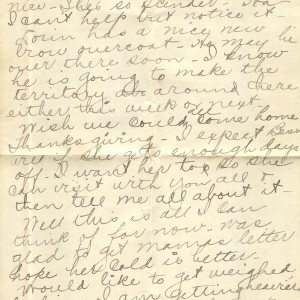 nice - She's so slender. And
I can't help but notice it -
Louin has a nicy new
brow overcoat - He may be
over there soon - I know
he is going to make the
territory all around there
either this week or next
Wish we could all come home
Thanksgiving - I expect Bess
will if she gets enough days
off - I want her to so she
can visit with you all &
then tell me all about it -
Well this is all I can
think of for now. Was
glad to get mamas letter
hope her cold is better.
Would like to get weighed
I am getting heavier